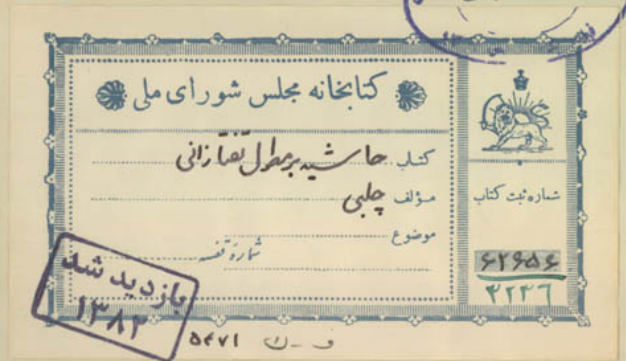 کتابخانه مجلس شورای ملی
کتاب حاشیه بر مطول تفتازانی
مؤلف چلبی
موضوع
شمارهٔ قفسه
شماره ثبت کتاب
۶۲۹۵۶
۳۲۳۶
بازدید شد
۱۳۸۲
۵۴۷۱